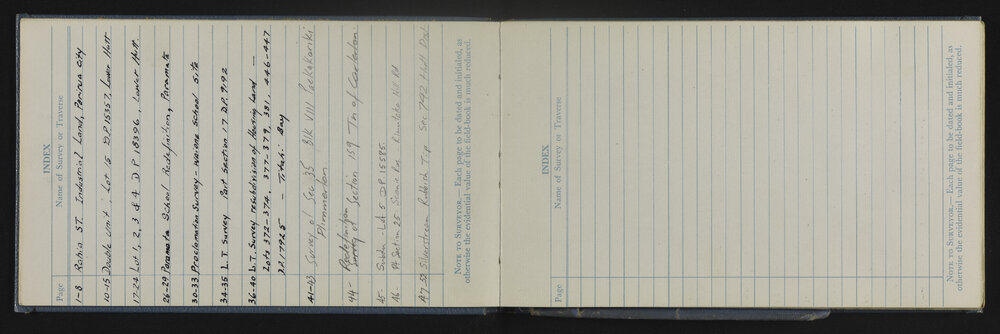 INDEX
Page Name of Survey or Traverse
1-8 Rahia ST. Industrial Land, Porirua City
10-15 Double Unit, Lot 15 D.P. 15357, Lower Hutt
17-24 Lot 1, 2, 3 & 4 D.P. 18396, Lower Hutt.
26-29 Paramata School Redefinition, Paramata
30-33 Proclamation Survey - School Site
34-35 L.T. Survey Part Section 17 D.P. 9192
36-40 L.T. Survey resubdivision of Housing Land —
Lots 372-374, 377-379, 381, 446-447
D.P. 17925 — Titahi Bay
41-43 Survey of Sec 35 Blk VIII Paekakariki
Dimension
44- Redefinition
Survey of Section 159 Tn of Carterton
45- Subdn - Lot 5 D.P. 15585.
46- Pt Section 25 Scenic Res Hill Rd
47-52 Silverstream Rubbish Tip Sec 792 Hutt Dist
NOTE TO SURVEYOR.— Each page to be dated and initialed, as
otherwise the evidential value of the field-book is much reduced.
INDEX
Page Name of Survey or Traverse
NOTE TO SURVEYOR.— Each page to be dated and initialed, as
otherwise the evidential value of the field-book is much reduced.